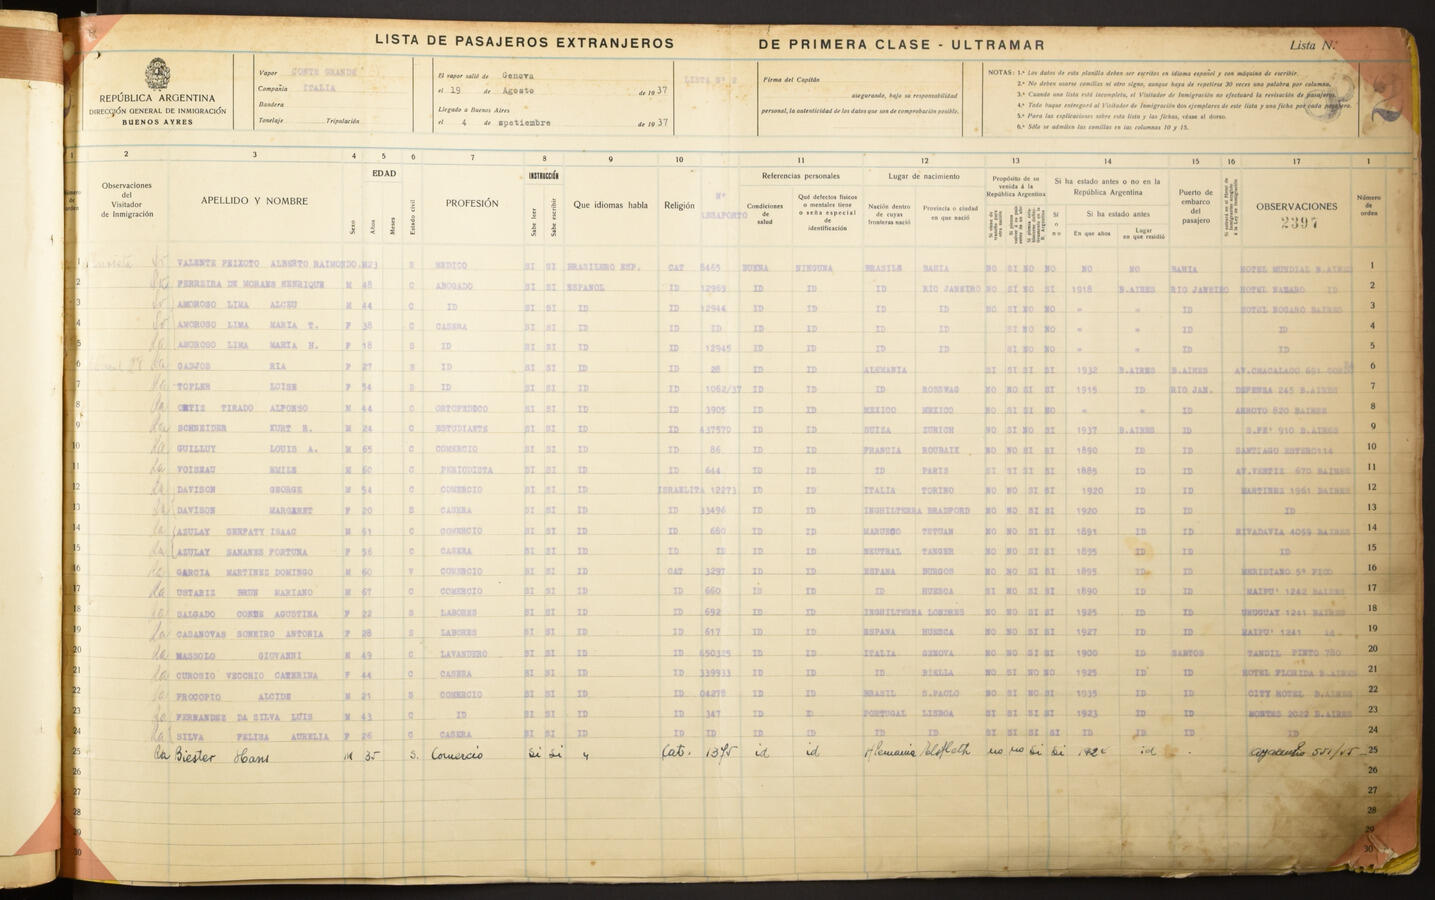 LISTA DE PASAJEROS EXTRANJEROS DE PRIMERA CLASE - ULTRAMAR Lista N.
REPÚBLICA ARGENTINA
DIRECCIÓN GENERAL DE INMIGRACIÓN
BUENOS AYRES
Vapor CONTE GRANDE
Compañía ITALIA
Bandera
Tonelaje Tripulación
El vapor salió de Genova
el 19 de Agosto de 1937
Llegado a Buenos Aires
el 4 de spetiembre de 1937
LISTA Nº 2
Firma del Capitán
asegurando, bajo su responsabilidad
personal, la autenticidad de los datos que son de comprobación posible.
NOTAS: 1.ª Los datos de esta planilla deben ser escritos en idioma español y con máquina de escribir.
2.ª No deben usarse comillas ni otro signo, aunque haya de repetirse 30 veces una palabra por columna.
3.ª Cuando una lista está incompleta, el Visitador de Inmigración no efectuará la revisación de pasajeros.
4.ª Todo buque entregará al Visitador de Inmigración dos ejemplares de esta lista y una ficha por cada pasajero.
5.ª Para las explicaciones sobre esta lista y las fichas, véase al dorso.
6.ª Sólo se admiten las comillas en las columnas 10 y 15.
1 2 3 4 5 6 7 8 9 10 11 12 13 14 15 16 17 1
Número de orden
Observaciones del Visitador de Inmigración
APELLIDO Y NOMBRE
Sexo
EDAD
Años
Meses
Estado civil
PROFESIÓN
INSTRUCCIÓN
Sabe leer
Sabe escribir
Que idiomas habla
Religión
Nº
Referencias personales
Condiciones de salud
Qué defectos físicos o mentales tiene o seña especial de identificación
Lugar de nacimiento
Nación dentro de cuyas fronteras nació
Provincia o ciudad en que nació
Propósito de su venida á la República Argentina
Si ha estado antes o no en la República Argentina
Sí o no
Si ha estado antes
En que años
Lugar en que residió
Puerto de embarco del pasajero
OBSERVACIONES
2397
Número de orden
1 VALENTE PEIXOTO ALBERTO RAIMONDO M 23 S MEDICO SI SI BRASILERO ESP. CAT 8465 BUENA NINGUNA BRASILE BAHIA NO SI NO NO NO NO BAHIA HOTEL MUNDIAL B.AIRES 1
2 FERREIRA DE MORAES HENRIQUE M 48 C ABOGADO SI SI ESPANOL ID 12969 ID ID ID RIO JANEIRO NO SI NO SI 1918 B.AIRES RIO JANEIRO ID 2
3 AMOROSO LIMA ALCEU M 44 C ID SI SI ID ID 12944 ID ID ID ID NO SI NO NO " " ID HOTEL NOGARO BAIRES 3
4 AMOROSO LIMA MARIA T. F 38 C CASERA SI SI ID ID ID ID ID ID ID SI NO NO " " ID ID 4
5 AMOROSO LIMA MARIA H. F 18 S ID SI SI ID ID 12945 ID ID ID ID SI NO NO " " ID ID 5
6 GADJOS RIA F 27 S ID SI SI ID ID 28 ID ID ALEMANIA SI SI SI SI 1932 B.AIRES B.AIRES 6
7 TOPLER LOISE F 54 S ID SI SI ID ID 1062/37 ID ID ID ROSSWAG NO NO SI SI 1915 ID RIO JAN. DEFENSA 245 B.AIRES 7
8 ORTIZ TIRADO ALFONSO M 44 C ORTOPEDICO SI SI ID ID 3905 ID ID MEXICO MEXICO NO SI SI NO " " ID ARROYO 820 BAIRES 8
9 SCHNEIDER KURT R. M 24 C ESTUDIANTE SI SI ID ID 437570 ID ID SUIZA ZURICH NO SI NO SI 1937 B.AIRES ID S.FE' 910 B.AIRES 9
10 GUILLUY LOUIS A. M 65 C COMERCIO SI SI ID ID 86 ID ID FRANCIA ROUBAIX NO NO SI SI 1890 ID ID SANTIAGO ESTERO114 10
11 VOISEAU EMILE M 60 C PERIODISTA SI SI ID ID 644 ID ID ID PARIS SI SI SI SI 1885 ID ID 670 BAIRES 11
12 DAVISON GEORGE M 54 C COMERCIO SI SI ID ISRAELITA 12273 ID ID ITALIA TORINO NO NO SI SI 1920 ID ID MARTINEZ 1961 BAIRES 12
13 DAVISON MARGARET F 20 S CASERA SI SI ID ID 33496 ID ID INGHILTERRA BRADFORD NO NO SI SI 1920 ID ID ID 13
14 AZULAY SERFATY ISAAC M 61 C COMERCIO SI SI ID ID 680 ID ID MARUECO TETUAN NO NO SI SI 1891 ID ID RIVADAVIA 4059 BAIRES 14
15 AZULAY SANANES FORTUNA F 56 C CASERA SI SI ID ID ID ID ID NEUTRAL TANGER NO NO SI SI 1895 ID ID ID 15
16 GARCIA MARTINEZ DOMINGO M 60 V COMERCIO SI SI ID CAT 3297 ID ID ESPANA BURGOS NO NO SI SI 1895 ID ID MERIDIANO 5º PICO 16
17 USTARIZ BRUN MARIANO M 67 C COMERCIO SI SI ID ID 660 ID ID ID HUESCA SI NO SI SI 1890 ID ID MAIPU' 1242 BAIRES 17
18 SALGADO CONDE AGUSTINA F 22 S LABORES SI SI ID ID 692 ID ID INGHILTERRA LONDRES NO NO SI SI 1925 ID ID URUGUAY 1241 BAIRES 18
19 CASANOVAS SOMEIRO ANTONIA F 28 S LABORES SI SI ID ID 617 ID ID ESPANA HUESCA NO NO SI SI 1927 ID ID MAIPU' 1241 19
20 MASSOLO GIOVANNI M 49 C LAVANDERO SI SI ID ID 650325 ID ID ITALIA GENOVA NO NO SI SI 1900 ID SANTOS TANDIL PINTO 780 20
21 CUROSIO VECCHIO CATERINA F 44 C CASERA SI SI ID ID 339933 ID ID ID BIELLA NO SI NO NO 1925 ID ID HOTEL FLORIDA B.AIRES 21
22 PROCOPIO ALCIDE M 21 S COMERCIO SI SI ID ID 04278 ID ID BRASIL S.PAOLO NO SI NO SI 1935 ID ID CITY HOTEL B.AIRES 22
23 FERNANDEZ DA SILVA LUIS M 43 C ID SI SI ID ID 347 ID PORTUGAL LISBOA SI SI SI SI 1923 ID ID MONTES 2022 B.AIRES 23
24 SILVA FELISA AURELIA F 26 C CASERA SI SI ID ID ID ID ID ID ID SI SI SI SI ID ID ID ID 24
25 Biester Hans M 35 S. Comercio Si Si Cat. 1375 id id Alemania no no Si Si id 25
26 26
27 27
28 28
29 29
30 30